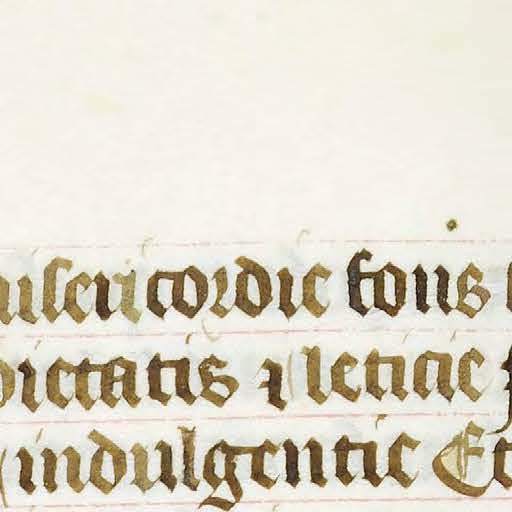 misericordie fons
pietatis ⁊ leticie
indulgentie Et